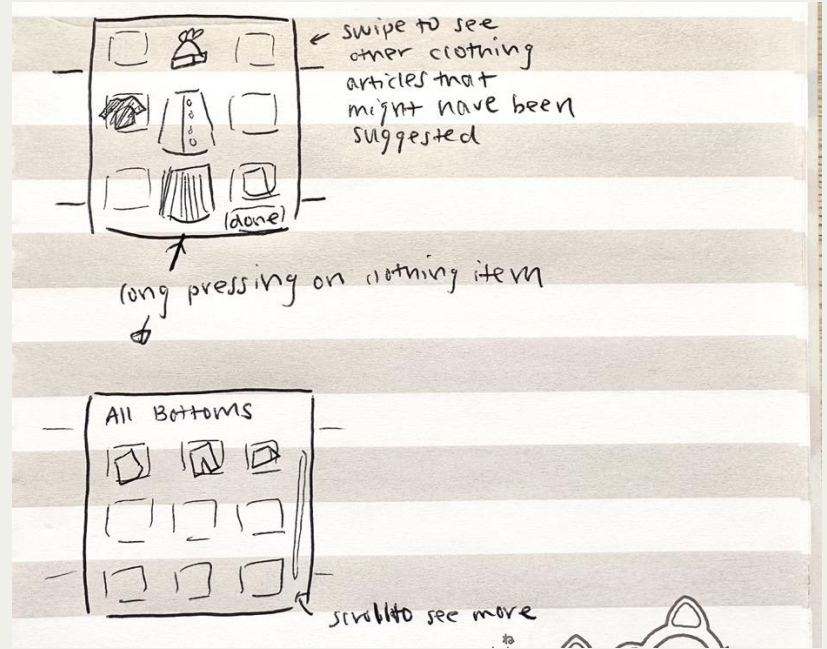 swipe to see
other clothing
articles that
might have been
suggested
(done)
long pressing on clothing item
All Bottoms
scroll to see more
ね